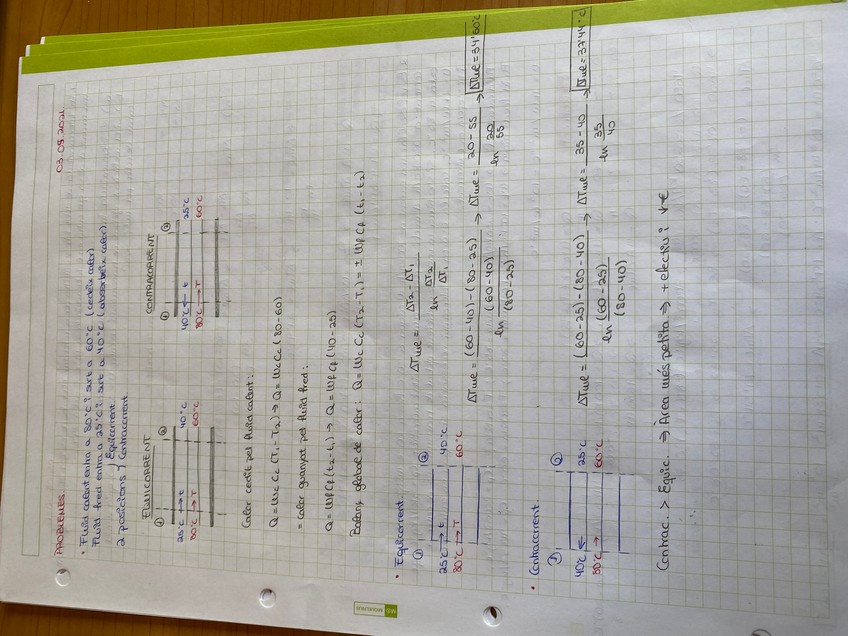 PROBLEMES
03.03.2021
• Fluid calent entra a 80°C i surt a 60°C (cedeix calor)
Fluid fred entra a 25°C i surt a 40°C (absorbeix calor)
2 posicions Equicorrent
Contracorrent
EQUICORRENT
① ②
25°C → t 40°C
80°C → T 60°C
CONTRACORRENT
① ②
40°C ← t 25°C
80°C → T 60°C
Calor cedit pel fluid calent:
Q = Wc Cc (T1 - T2) → Q = Wc Cc (80 - 60)
= calor guanyat pel fluid fred:
Q = Wf Cf (t2 - t1) → Q = Wf Cf (40 - 25)
Balanç global de calor: Q = Wc Cc (T2 - T1) = ± Wf Cf (t1 - t2)
• Equicorrent
① ②
25°C → t 40°C
80°C → T 60°C
ΔTml = ΔT2 - ΔT1 / ln ΔT2 / ΔT1
ΔTml = (60 - 40) - (80 - 25) / ln (60 - 40) / (80 - 25) → ΔTml = 20 - 55 / ln 20 / 55 → ΔTml = 34'60°C
• Contracorrent
① ②
40°C ← 25°C
80°C → 60°C
ΔTml = (60 - 25) - (80 - 40) / ln (60 - 25) / (80 - 40) → ΔTml = 35 - 40 / ln 35 / 40 → ΔTml = 37'44°C
Contrac. > Equic. ⇒ Àrea més petita ⇒ + efectiu i
MIQUELRIUS